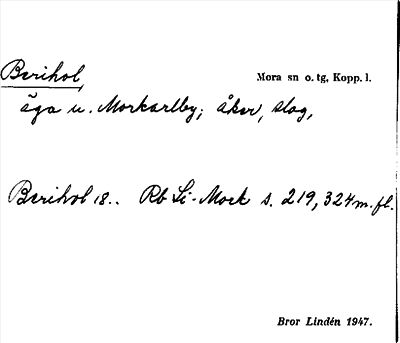 Berihol
Mora sn o. tg, Kopp. l.
äga u. Morkarlby; åker, slog,
Berihol 18.. Rb Li-Mork s. 219, 324 m. fl.
Bror Lindén 1947.